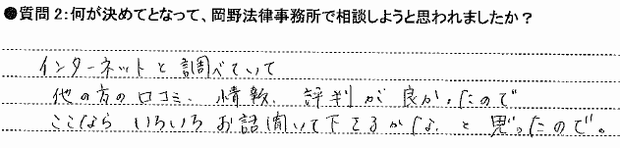 ●質問2:何が決めてとなって、岡野法律事務所で相談しようと思われましたか?
インターネットと調べていて
他の方の口コミ、情報、評判が良かったので
ここなら いろいろ お話聞いて下さるかなぁ と思ったので。